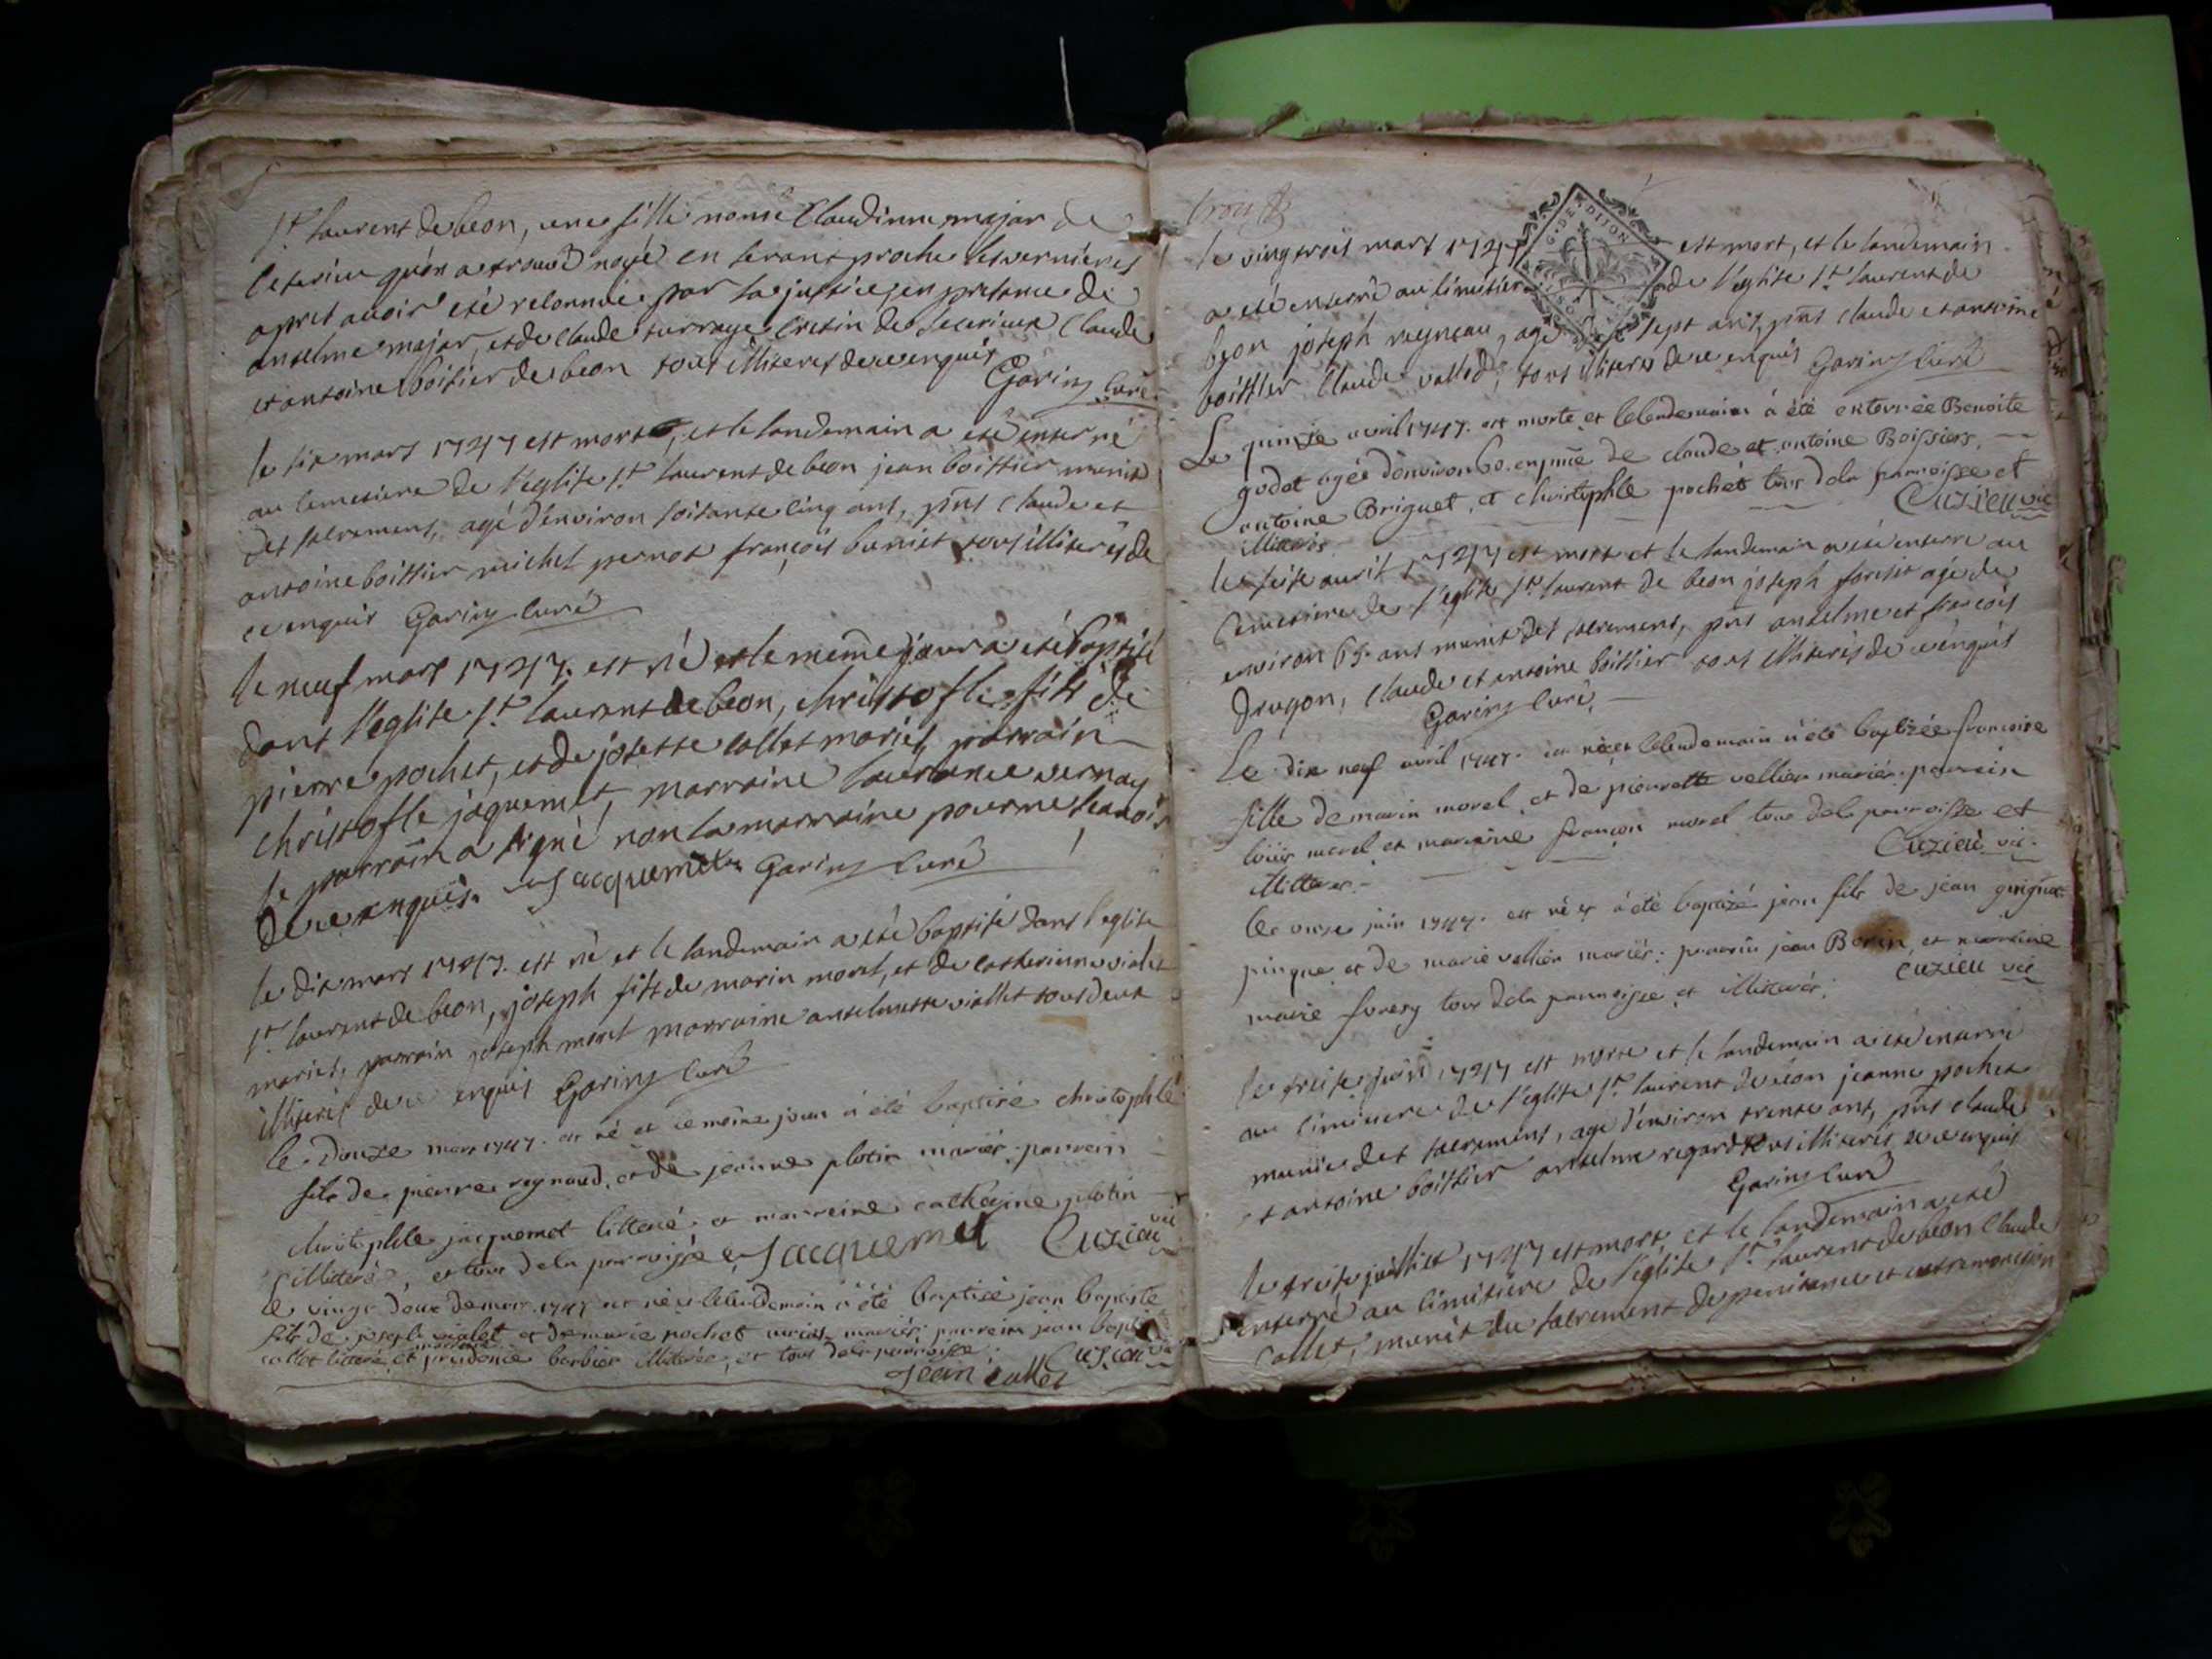 St laurent de beon, une fille nomé Claudinne major de
qu'on a trouvé noyé en proche
apret avoir eté relonnüe par la justice, en presance de
anselme major, et de Claude Cretin de Claude
et antoine boissier de beon tous illiteres de ce enquis
Garin curé
le six mars 1747 est mort, et le landemain a eté enterré
au cemetiere de l'eglise St laurent de beon jean boissier munis
des sacremens, agé d'environ soisante cinq ans, pnts Claude et
antoine boissier michel pernot françois buniet tous illiterés de
ce enquis Garin curé
le neuf mars 1747. est né et le meme jour a eté baptisé
dans l'eglise St laurent de beon, christofle fils de
pierre pochet, et de josette collet mariés, parrain
christofle jaquemet, marraine laurance vernay
le parrain a signé non la marraine pour ne scavoir
de ce enquis. Jacquemet Garin curé
le dix mars 1747. est né et le landemain a eté baptisé dans l'eglise
St laurent de beon, joseph fils de marin morel, et de catherinne violet
mariés, parrain joseph morel marraine anselmette viollet tous deux
illiterés de ce enquis Garin curé
le douze mars 1747. est né et le même jour a été baptisé christophle
fils de pierre reynaud, et de jeanne plotin mariés. parrein
christophle jacquemet litteré. et marreine catherine plotin
illitterée, et tous de la parroisse Jacquemet Cuzieu vic
le vingt deux de mars 1747 est né et le lendemain a été baptisé jean baptiste
fils de joseph violet et de marie pochet mariés. parrein jean bapt
collet litteré, et marreine prudence barbier illiterée, et tous de la parroisse
Jean Collet Cuzieu vic
le vingtrois mars 1747 est mort, et le landemain
a eté enterré au cimitiere de l'eglise St laurent de
beon joseph reyneau, agé de sept ans, pnts claude et antoine
boissier Claude vallod, tous illiterés de ce enquis Garin curé
Le quinze avril 1747. est morte et le lendemain à été enterrée Benoite
godet agée d'environ 60. en pnce de claude et antoine Boissier,
antoine Briguet, et christophle pochet tous de la parroisse et
illiterés. Cuzieu vic
le seise avril 1747 est mort et le landemain a eté enterré au
cemetiere de l'eglise St laurent de beon joseph forest agé de
environ 65 ans munis des sacremens, pnts anselme et francois
Drugon, Claude et antoine boissier tous illiterés de ce enquis
Garin curé
Le dix neuf avril 1747. est née et le lendemain a été baptizée francoise
fille de marin morel, et de pierrette vellier mariés. parrein
louis morel et marraine françon morel tous de la parroisse et
illitteres. Cuzieu vic.
le onze juin 1747. est né et a été baptizé jean fils de jean
pingue et de marie vellier mariés: parrein jean Borin et marreine
marie foresy tous de la parroisse et illiterés. Cuzieu vic
le treise juin 1747 est morte et le landemain a eté enterré
au cimitiere de l'eglise St laurent de béon jeanne pochet
munie des sacremens, age d'environ trense ans, pnts claude
et antoine boissier anselme regard tous illiterés de ce enquis
Garin curé
le treise juillet 1747 est mort, et le landemain a eté
enterré au cimitiere de l'eglise St laurent de béon Claude
Collet, munit du sacrement de penitance et extremonction
G. DE DIJON